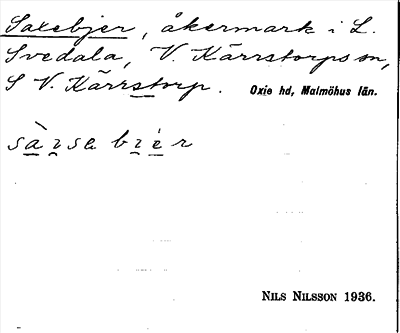 Saxebjer, åkermark i L.
Svedala, V. Kärrstorps sn,
S V. Kärrstorp. Oxie hd, Malmöhus län.
NILS NILSSON 1936.